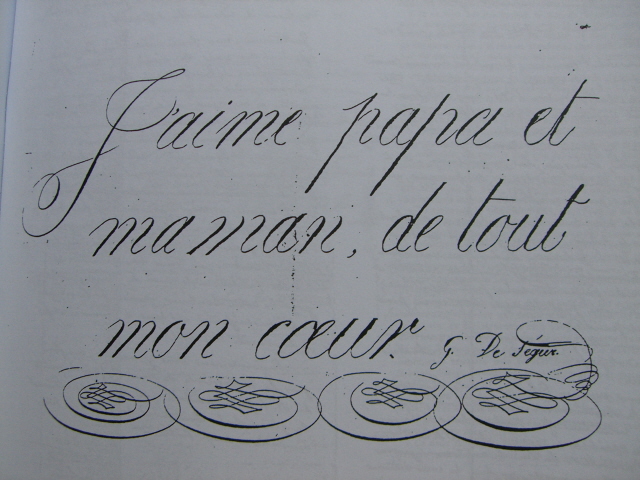 J'aime papa et
maman, de tout
mon cœur.
G. De Ségur.